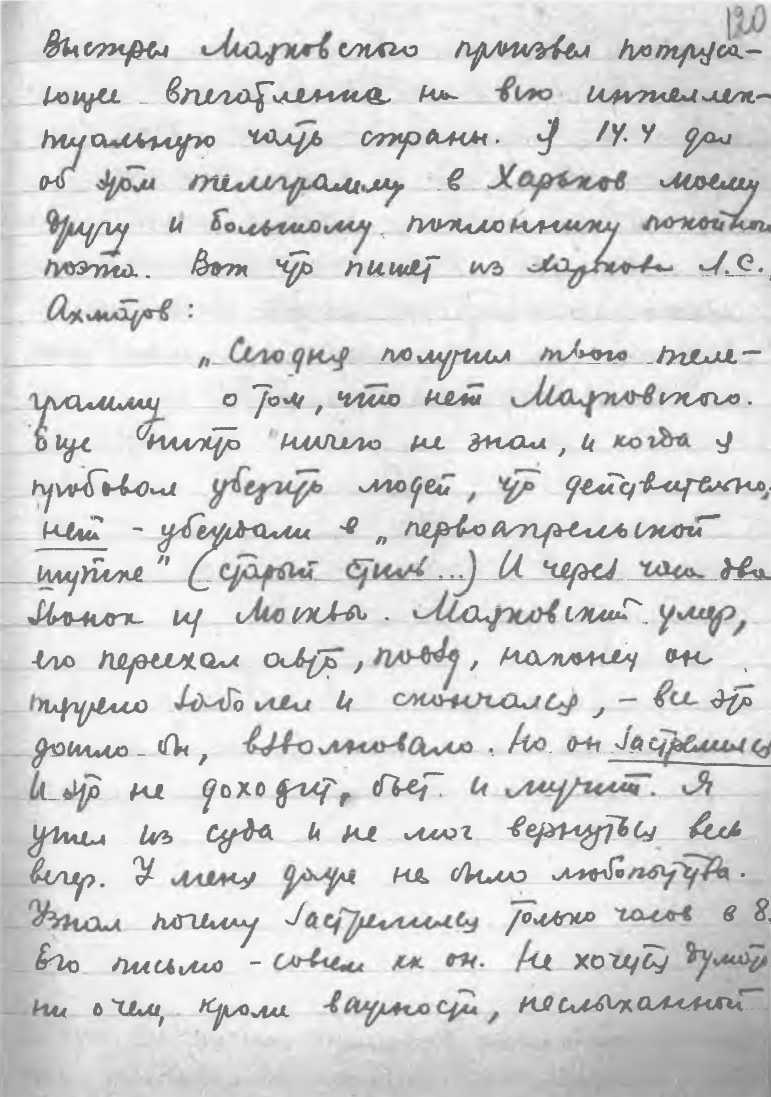 120
Выстрел Маяковского произвел потряса-
ющее впечатление на всю интеллек-
туальную часть страны. Я 14.4 дал
об этом телеграмму в Харьков моему
другу и большому поклоннику покойного
поэта. Вот что пишет из Харькова Л.С.
Ахматов:
„Сегодня получил твою теле-
грамму о том, что нет Маяковского.
Еще никто ничего не знал, и когда я
пробовал убедить людей, что действительно
нет - убеждали в „первоапрельской
шутке" (старый стиль...) И через часа два
звонок из Москвы. Маяковский умер,
его переехал авто, поезд, наконец он
тяжело заболел и скончался, - все это
дошло бы, взволновало. Но он застрелился
И это не доходит, бьет и мучит. Я
ушел из суда и не мог вернуться весь
вечер. У меня даже не было любопытства.
Узнал почему застрелился только часов в 8.
Его письмо - совсем как он. Не хочется думать
ни о чем, кроме важности, неслыханной